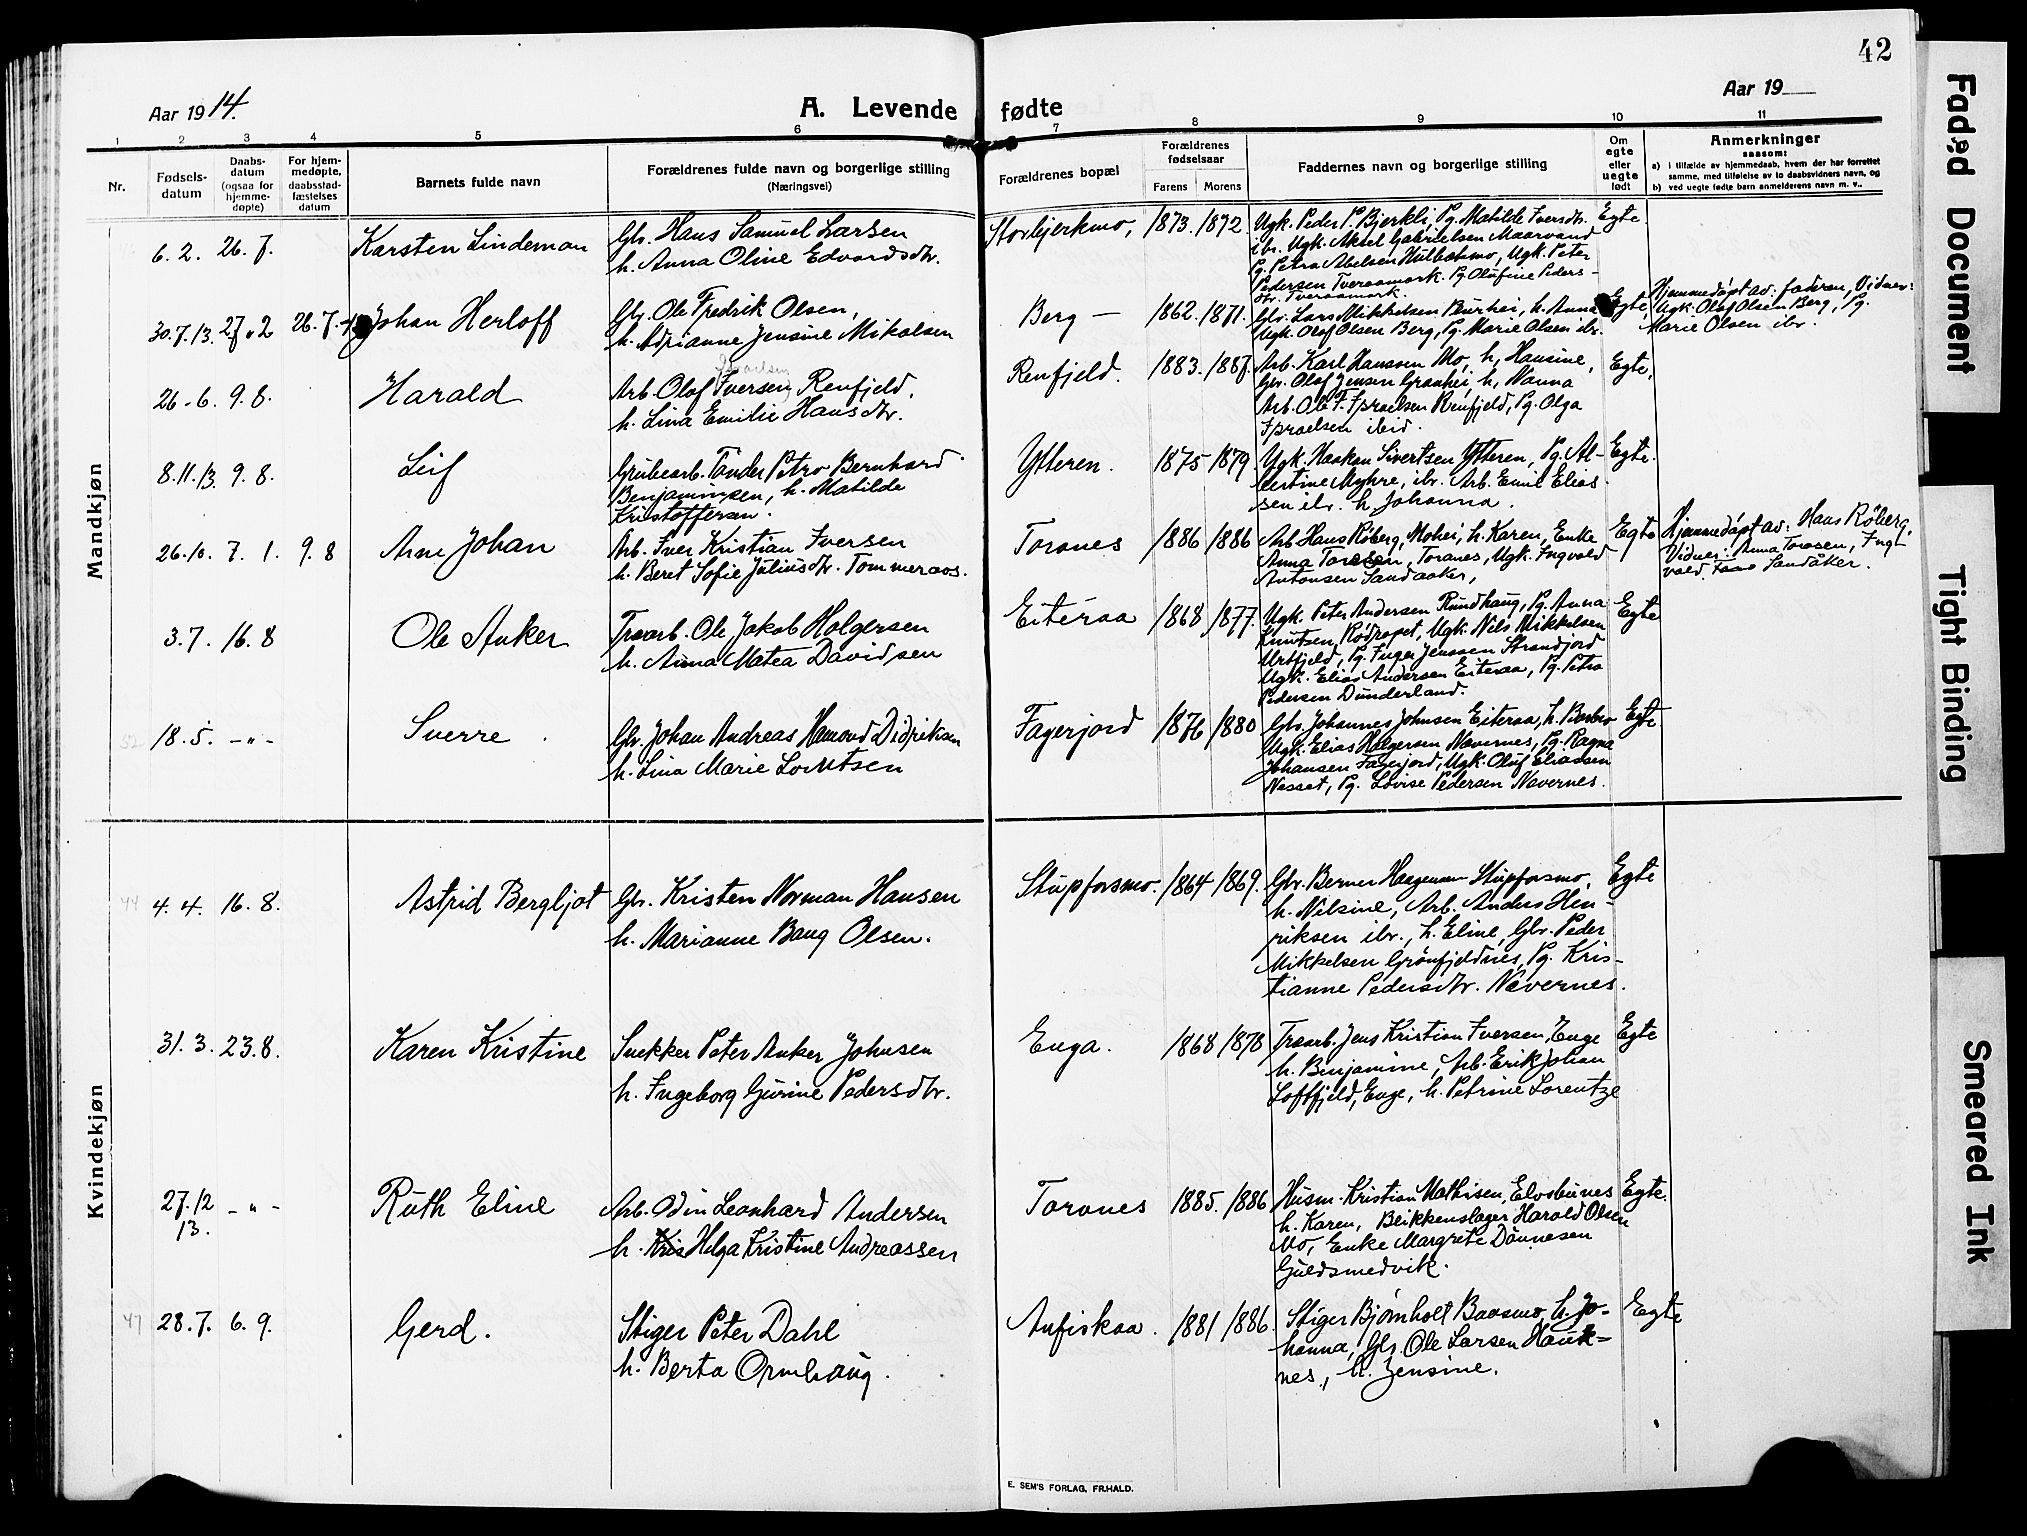 42
Aar 1914.
A. Levende fødte
Aar 19
1 2 3 4 5 6 7 8 9 10 11
Nr.
Fødsels-
datum
Daabs-
datum
(ogsaa for
hjemme-
døpte)
For hjem-
medøpte,
daabsstad-
fæstelses
datum
Barnets fulde navn
Forældrenes fulde navn og borgerlige stilling
(Næringsvei)
Forældrenes bopæl
Forældrenes
fødselsaar
Farens Morens
Faddernes navn og borgerlige stilling
Om
egte
eller
uegte
født
Anmerkninger
saasom:
a) i tilfælde av hjemmedaab, hvem der har forrettet
samme, med tilføielse av to daabsvidners navn, og
b) ved uegte fødte barn anmelderens navn m. v..
Mandkjøn
6. 2. 26. 7. Karsten Lindeman
Gbr. Hans Samuel Larsen
h. Anna Oline Edvardsdtr.
Storbjerkmo, 1873. 1872.
Ugk. Peder P. Bjerkli, Pg. Matilde Iversdtr.
ibr. Ugk. Aksel Gabrielsen Maarvand
Pg. Petra Abelsen Hulbækmo, Ugk. Peter
Pedersen Tveraamark. Pg. Olufine Peders-
dtr. Tveraamark.
Egte
30.7.13. 27 2 26. 7. Johan Herloff
Gbr. Ole Fredrik Olsen,
h. Adrianne Jensine Mikalsen
Berg — 1862. 1871.
Gbr. Lars Mikkelsen Burhei, h. Anna
Ugk. Olof Olsen Berg, Pg. Marie Olsen ibr.
Egte,
Hjemmedøpt av: faderen, Vidner:
Ugk. Olof Olsen Berg, Pg.
Marie Olsen ibr.
26. 6. 9. 8. Harald
Arb. Olof Iversen Renfjeld.
h. Lina Emilie Hansdtr.
Renfjeld. 1883. 1887.
Arb. Karl Hanssen Mo, h. Hansine,
Gbr. Olof Jensen Granhei, h. Nanna
Arb. Ole F. Israelsen Renfjeld, Pg. Olga
Israelsen ibid.
Egte,
8.11.13. 9. 8. Leif
Grubearb. Tønder Petro Bernhard
Benjaminsen, h. Matilde
Kristoffersen.
Ytteren. 1875 1879.
Ugk. Haakon Sivertsen Ytteren, Pg. Al-
bertine Myhre, ibr. Arb. Emil Elias-
sen ibr. h. Johanna.
Egte.
26.10. 7. 1. 9. 8 Arne Johan
Arb. Iver Kristian Iversen
h. Beret Sofie Juliusdtr. Tommeraas.
Toranes 1886 1886
Arb Hans Røberg, Mohei, h. Karen, Enke
Anna Toresen, Toranes, Ugk. Ingvald
Antonsen Sandaaker,
Egte
Hjemmedøpt av: Hans Røberg,
Vidner: Anna Toresen, Ing-
vald Sandaker.
3. 7. 16. 8 Ole Anker
Træarb. Ole Jakob Holgersen
h. Anna Matea Davidsen
Eiteraa 1868 1877.
Ugk. Peter Andersen Rundhaug, Pg. Anna
Knutsen, Rødropet, Ugk. Nils Mikkelsen
Urtfjeld, Pg. Inger Jenssen Strandjord
Ugk. Elias Andersen Eiteraa, Pg. Petra
Pedersen Dunderland.
Egte
18. 5. -"- Sverre
Gbr. Johan Andreas Hamond Didriksen
h. Lina Marie Lorntsen
Fagerjord 1876 1880
Gbr. Johannes Johnsen Eiteraa, h. Barbro
Ugk. Elias Holgersen Nævernes, Pg. Ragna
Johansen Fagerjord, Ugk. Oluf Eliassen
Næsset, Pg. Lovise Pedersen Nævernes.
Egte
Kvindekjøn
44 4. 4. 16. 8. Astrid Bergljot
Gbr. Kristen Norman Hansen
h. Marianne Bang Olsen.
Stupforsmo. 1864 1869.
Gbr. Berner Hagemann Stupforsmo,
h. Nilsine, Arb. Anders Hen-
riksen ibr., h. Eline, Gbr. Peder
Mikkelsen Grønfjeldnes, Pg. Kris-
tianne Pedersdtr. Nævernes.
Egte
31. 3. 23.8. Karen Kristine
Snekker Peter Anker Johnsen
h. Ingeborg Gurine Pedersdtr.
Enga. 1868 1878
Træarb. Jens Kristian Iversen, Enge
h. Benjamine, Arb. Erik Johan
Loftfjeld, Enge, h. Petrine Lorentze
Egte
27.12
13. -"- Ruth Eline
Arb. Odin Leonhard Andersen
h. Helga Kristine Andreassen
Toranes 1885. 1886
Husm. Kristian Mathisen, Elvsbunes
h. Karen, Blikkenslager Harald Olsen
Mo, Enke Margrete Dønnesen
Guldsmedvik.
Egte.
47 28. 7. 6. 9. Gerd.
Stiger Peter Dahl
h. Berta Ormhaug.
Anfiskaa. 1881 1886.
Stiger Bjørnholt Baasmo, h. Jo-
hanna, Gbr. Ole Larsen Hauk-
nes, h. Jensine.
Egte
E. SEM'S FORLAG, FR.HALD.
Faded Document
Tight Binding
Smeared Ink